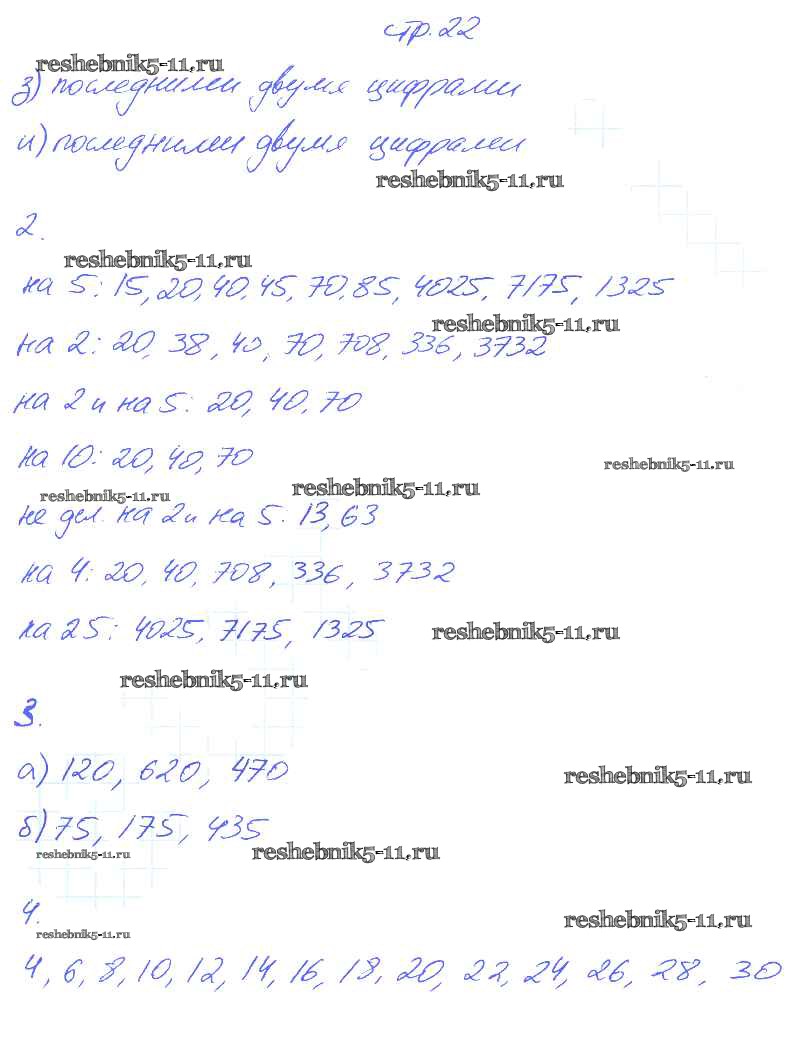 стр. 22
reshebnik5-11.ru
з) последними двумя цифрами
и) последними двумя цифрами
reshebnik5-11.ru
2.
reshebnik5-11.ru
на 5: 15, 20, 40, 45, 70, 85, 4025, 7175, 1325
reshebnik5-11.ru
на 2: 20, 38, 40, 70, 708, 336, 3732
на 2 и на 5: 20, 40, 70
на 10: 20, 40, 70
reshebnik5-11.ru
reshebnik5-11.ru
reshebnik5-11.ru
не дел. на 2 и на 5: 13, 63
на 4: 20, 40, 708, 336, 3732
на 25: 4025, 7175, 1325
reshebnik5-11.ru
reshebnik5-11.ru
3.
а) 120, 620, 470
reshebnik5-11.ru
б) 75, 175, 435
reshebnik5-11.ru
reshebnik5-11.ru
4.
reshebnik5-11.ru
reshebnik5-11.ru
4, 6, 8, 10, 12, 14, 16, 18, 20, 22, 24, 26, 28, 30